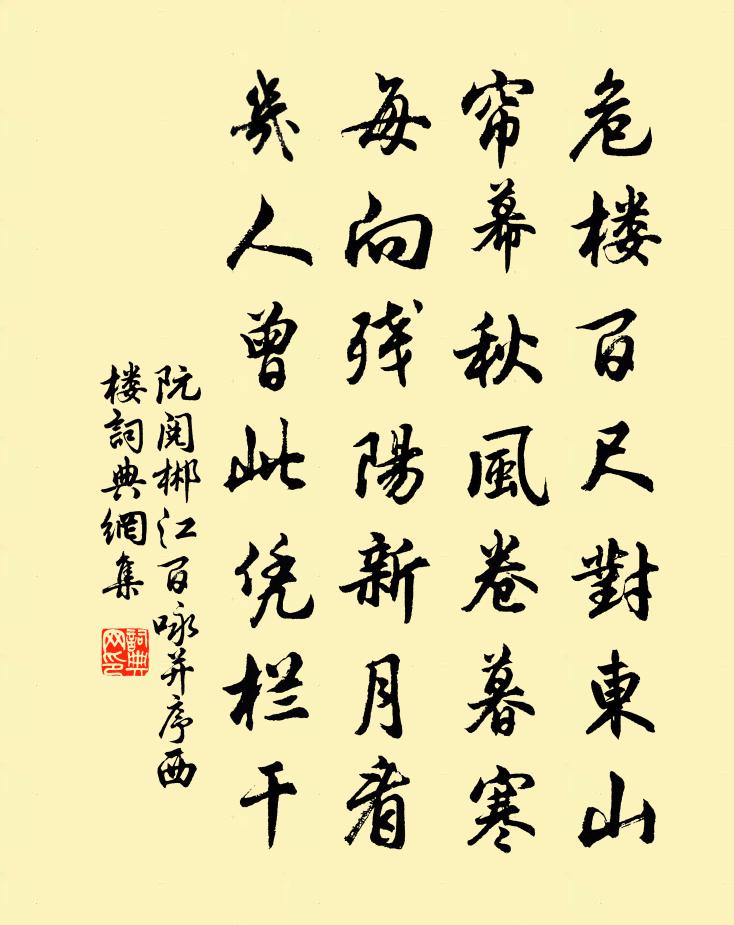 危楼百尺對東山
帘幕秋風卷暮寒
每向残陽新月看
幾人曾此凭栏干
阮閱郴江百咏并序西
楼詞典網集
詞典
网印